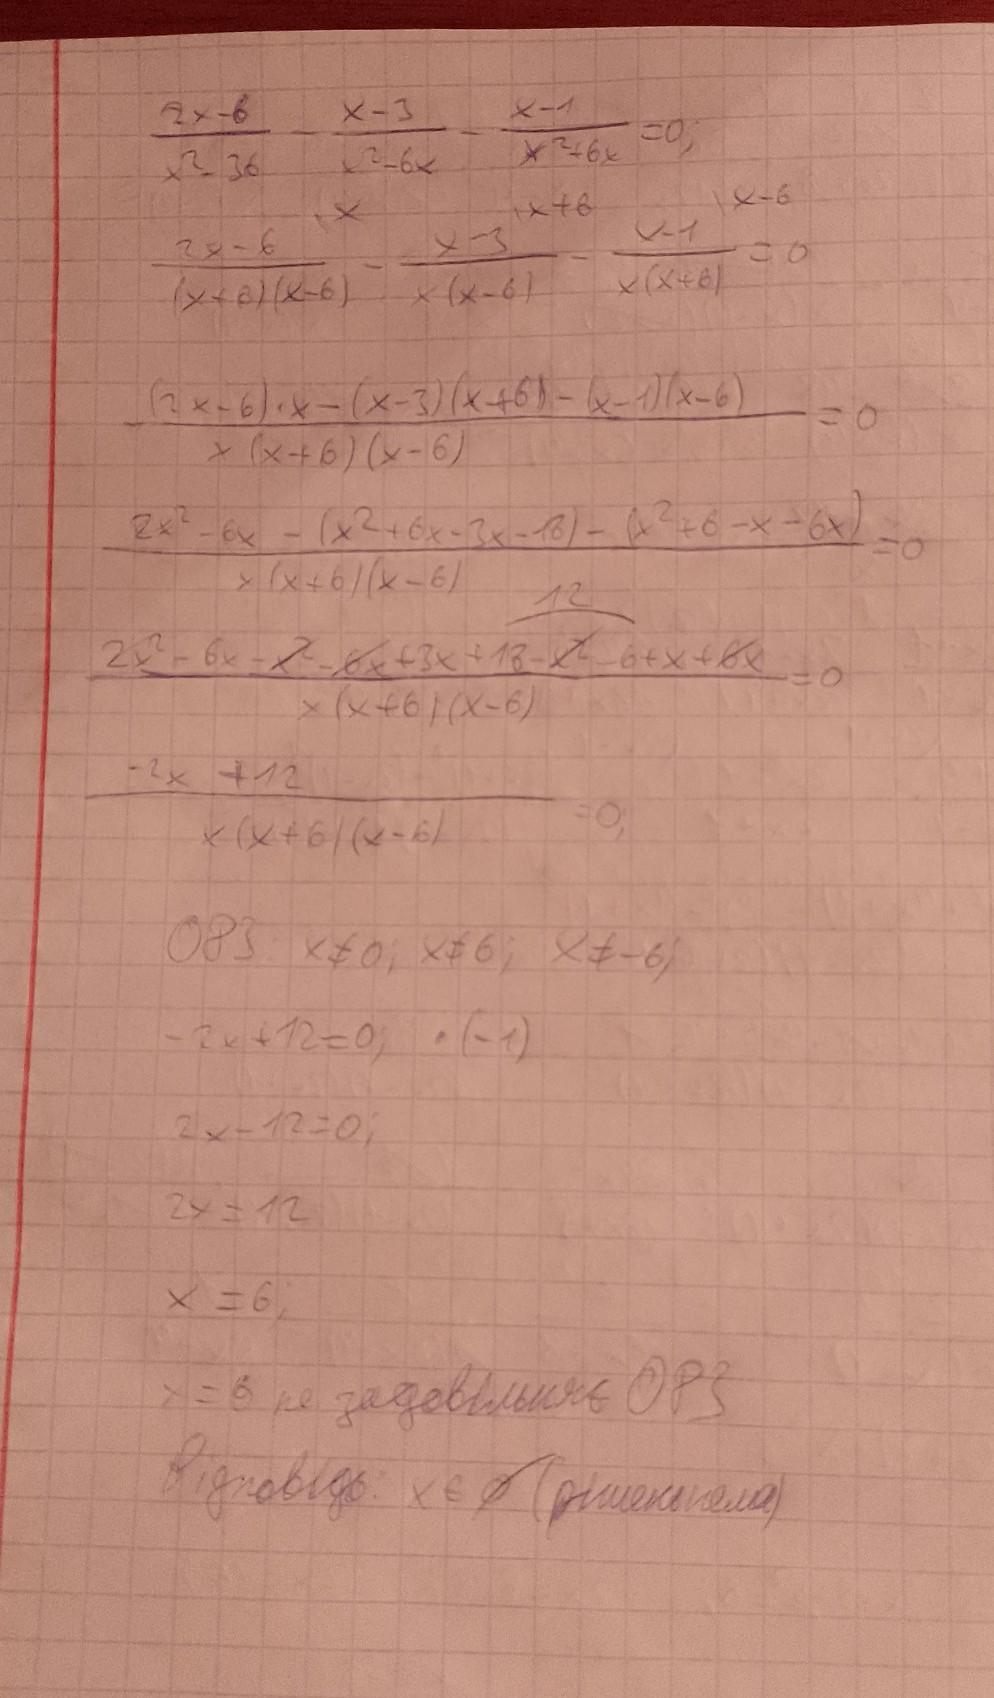 (2x-6)/(x²-36) - (x-3)/(x²-6x) - (x-1)/(x²+6x) =0;
(2x-6)/((x+6)(x-6)) ᐠx - (x-3)/(x(x-6)) ᐠx+6 - (x-1)/(x(x+6)) ᐠx-6 = 0
-((2x-6)·x-(x-3)(x+6)-(x-1)(x-6))/(x(x+6)(x-6)) = 0
(2x²-6x-(x²+6x-3x-18)-(x²+6-x-6x))/(x(x+6)(x-6)) =0
12
(2x²-6x-x²-6x+3x+18-x²-6+x+6x)/(x(x+6)(x-6)) =0
(-2x+12)/(x(x+6)(x-6)) =0;
ОРЗ: x≠0; x≠6; x≠-6;
-2x+12=0; ·(-1)
2x-12=0;
2x=12
x=6;
x=6 не задовільняє ОРЗ
Відповідь: x∈∅ (рішень нема)